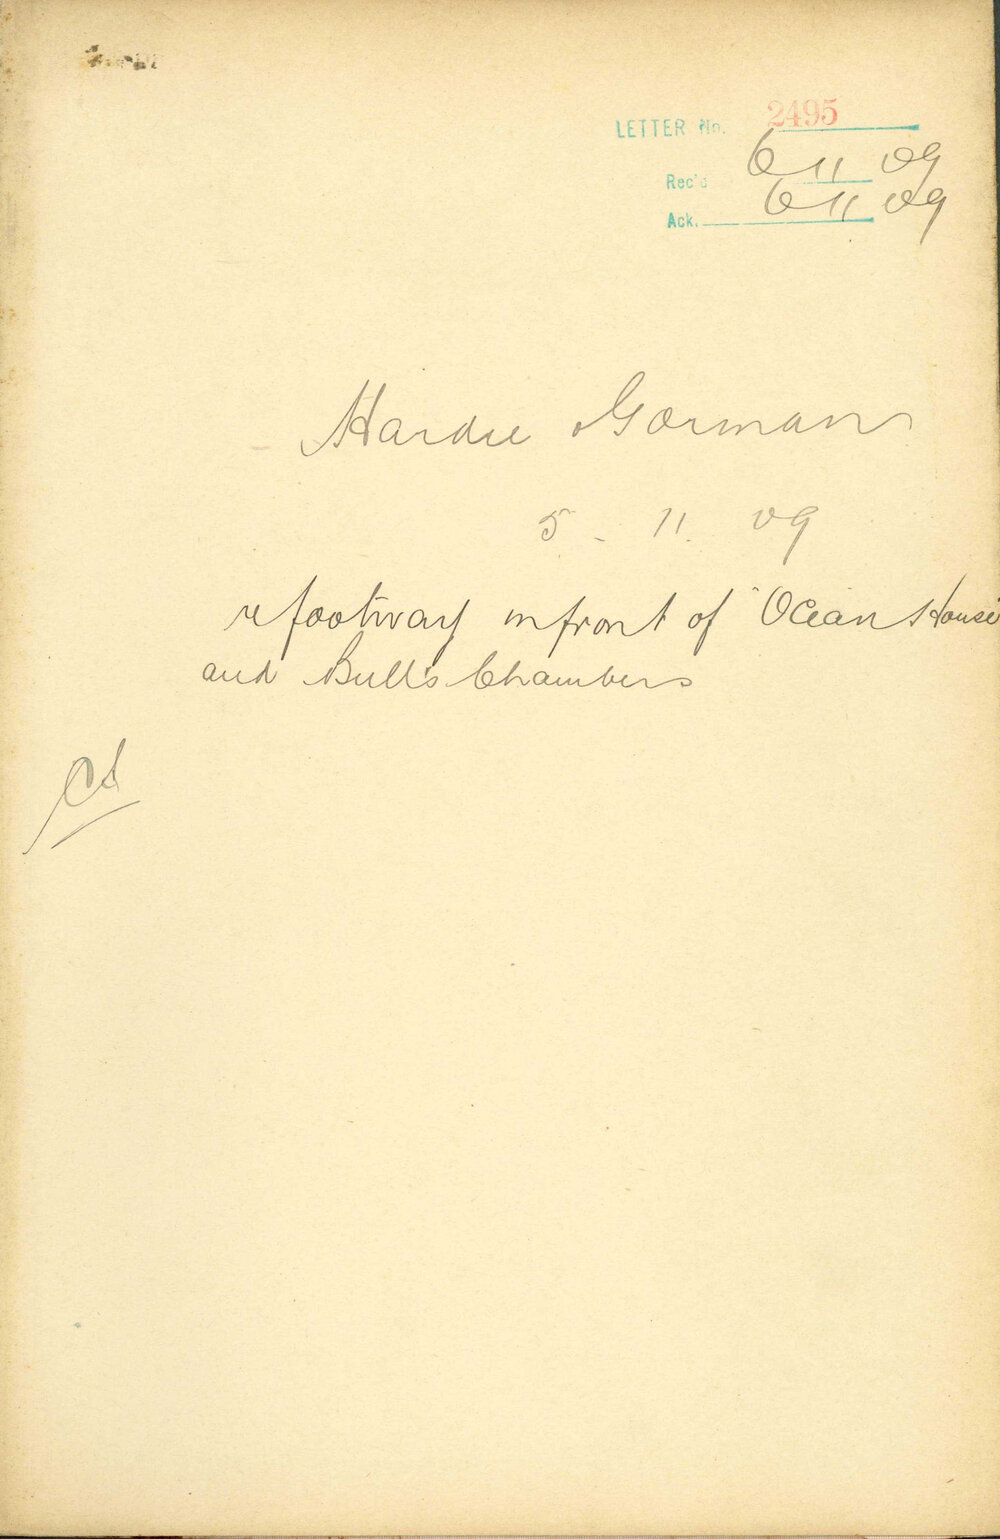 LETTER No. 2495
Rec'd 6 11 09
Ack. 6 11 09
Hardie Gorman
5 - 11. 09
re footway in front of "Ocean House"
and Bull's Chambers